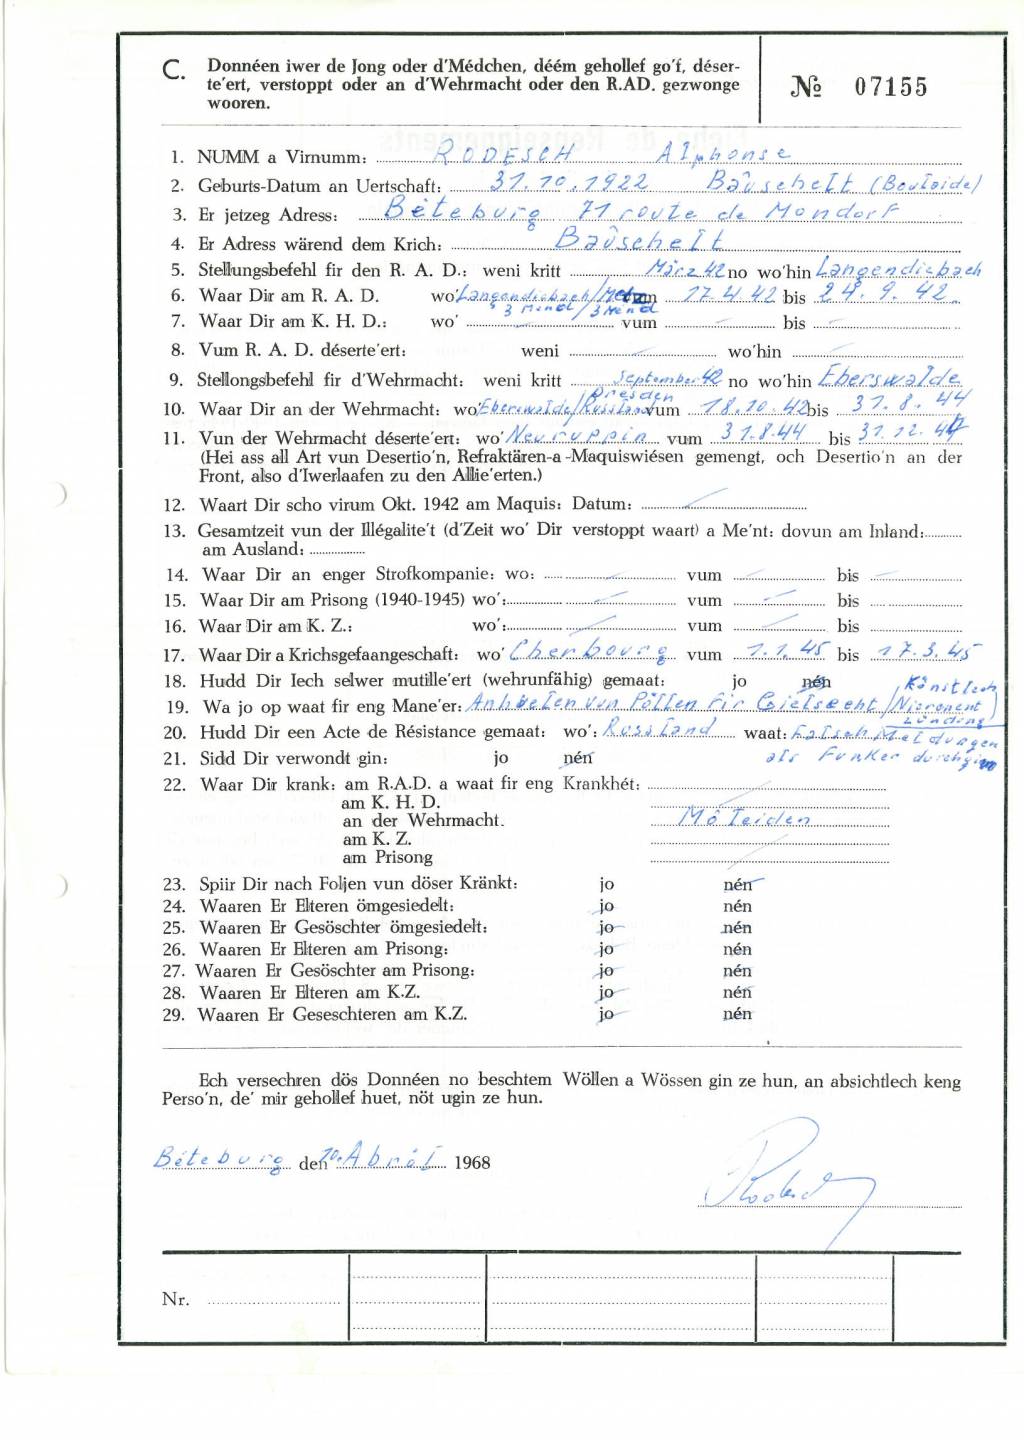 C. Donnéen iwer de Jong oder d'Médchen, déém gehollef go'f, déser-
te'ert, verstoppt oder an d'Wehrmacht oder den R.AD. gezwonge
wooren.
№ 07155
1. NUMM a Virnumm: RODESCH Alphonse
2. Geburts-Datum an Uertschaft: 31.10.1922 Bauschelt (Boulaide)
3. Er jetzeg Adress: Béteburg 71 route de Mondorf
4. Er Adress wärend dem Krich: Bauschelt
5. Stellungsbefehl fir den R. A. D.: weni kritt März 42 no wo'hin Langendiebach
6. Waar Dir am R. A. D. wo' Langendiebach/Metz vum 17.4.42 bis 24.9.42
3 Menot/3 Menod
7. Waar Dir am K. H. D.: wo' vum bis
8. Vum R. A. D. déserte'ert: weni wo'hin
9. Stellongsbefehl fir d'Wehrmacht: weni kritt September 42 no wo'hin Eberswalde
10. Waar Dir an der Wehrmacht: wo' Eberswalde/Dresden/Russland vum 18.10.42 bis 31.8.44
11. Vun der Wehrmacht déserte'ert: wo' Neuruppin vum 31.8.44 bis 31.12.44
(Hei ass all Art vun Desertio'n, Refraktären-a-Maquiswiésen gemengt, och Desertio'n an der
Front, also d'Iwerlaafen zu den Allie'erten.)
12. Waart Dir scho virum Okt. 1942 am Maquis: Datum:
13. Gesamtzeit vun der Illégalite't (d'Zeit wo' Dir verstoppt waart) a Me'nt: dovun am Inland:
am Ausland:
14. Waar Dir an enger Strofkompanie: wo: vum bis
15. Waar Dir am Prisong (1940-1945) wo': vum bis
16. Waar Dir am K. Z.: wo': vum bis
17. Waar Dir a Krichsgefaangeschaft: wo' Cherbourg vum 1.1.45 bis 17.3.45
18. Hudd Dir Iech selwer mutille'ert (wehrunfähig) gemaat: jo nén
19. Wa jo op waat fir eng Mane'er: Anhuelen vun Pöllen fir Gielsecht/Künstlech Nierenentzündung
20. Hudd Dir een Acte de Résistance gemaat: wo': Russland waat: Falsch Meldungen
als Funker durchginn
21. Sidd Dir verwondt gin: jo nén
22. Waar Dir krank: am R.A.D. a waat fir eng Krankhét:
am K. H. D.
an der Wehrmacht. Môleiden
am K. Z.
am Prisong
23. Spiir Dir nach Foljen vun döser Kränkt: jo nén
24. Waaren Er Elteren ömgesiedelt: jo nén
25. Waaren Er Gesöschter ömgesiedelt: jo nén
26. Waaren Er Elteren am Prisong: jo nén
27. Waaren Er Gesöschter am Prisong: jo nén
28. Waaren Er Elteren am K.Z. jo nén
29. Waaren Er Geseschteren am K.Z. jo nén
Ech versechren dös Donnéen no beschtem Wöllen a Wössen gin ze hun, an absichtlech keng
Perso'n, de' mir gehollef huet, nöt ugin ze hun.
Béteburg den 10. Abröl 1968
Nr.